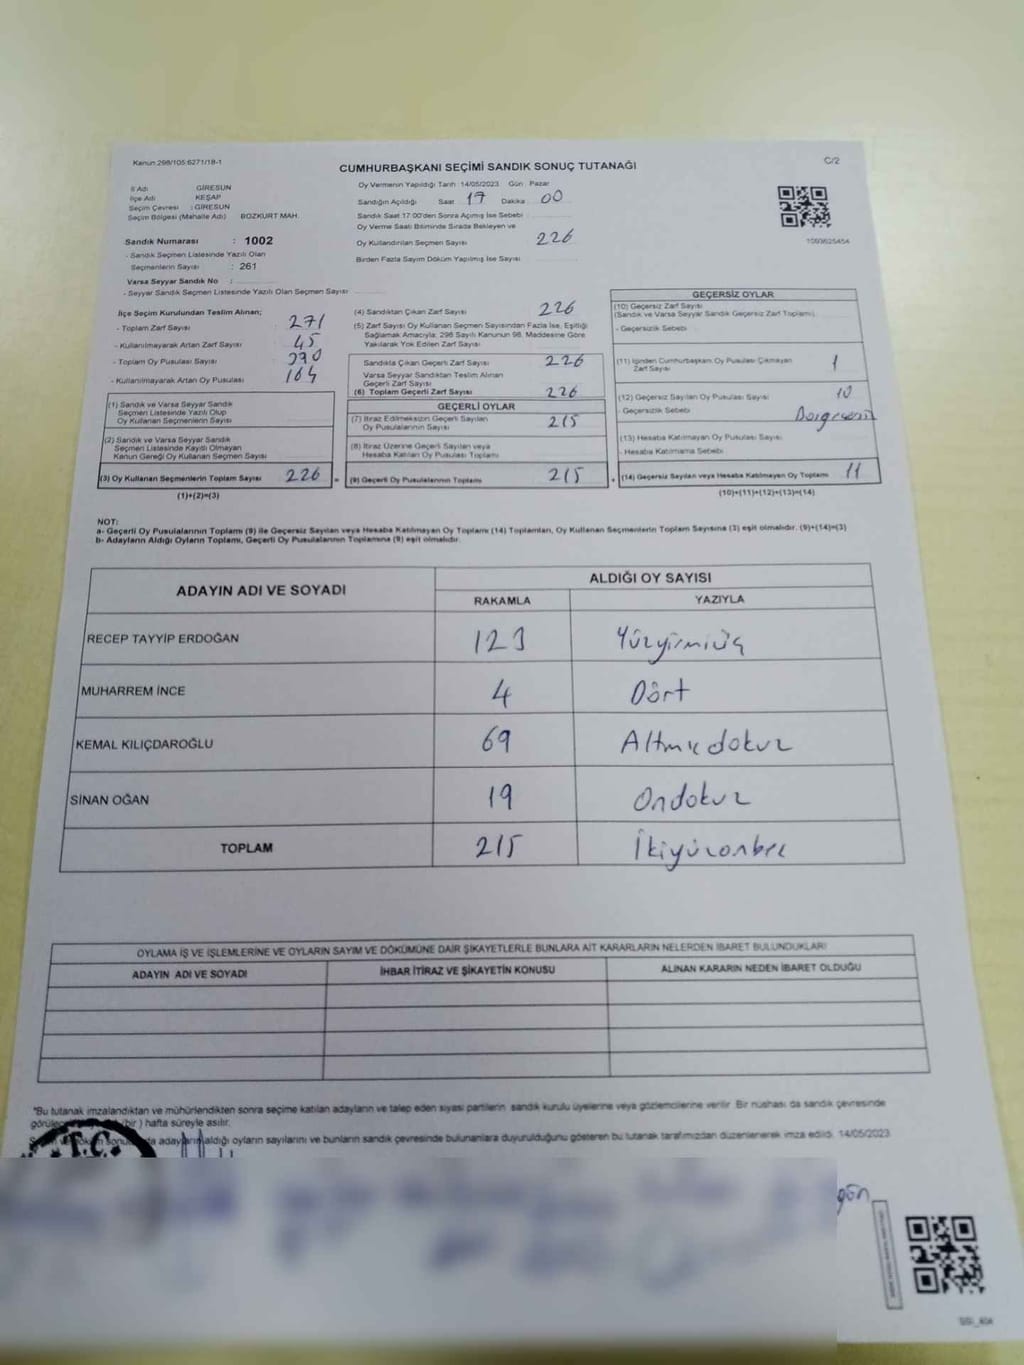 Kanun:298/105:6271/18-1
C/2
CUMHURBAŞKANI SEÇİMİ SANDIK SONUÇ TUTANAĞI
İl Adı GİRESUN
İlçe Adı KEŞAP
Seçim Çevresi : GİRESUN
Seçim Bölgesi (Mahalle Adı) BOZKURT MAH.
Sandık Numarası : 1002
- Sandık Seçmen Listesinde Yazılı Olan
Seçmenlerin Sayısı : 261
Varsa Seyyar Sandık No :
- Seyyar Sandık Seçmen Listesinde Yazılı Olan Seçmen Sayısı
Oy Vermenin Yapıldığı Tarih : 14/05/2023 Gün : Pazar
Sandığın Açıldığı Saat 17 Dakika 00
Sandık Saat 17:00'den Sonra Açımış İse Sebebi
Oy Verme Saati Bitiminde Sırada Bekleyen ve
Oy Kullandırılan Seçmen Sayısı 226
Birden Fazla Sayım Döküm Yapılmış İse Sayısı
İlçe Seçim Kurulundan Teslim Alınan;
- Toplam Zarf Sayısı 271
- Kullanılmayarak Artan Zarf Sayısı 45
- Toplam Oy Pusulası Sayısı
- Kullanılmayarak Artan Oy Pusulası 164
(1) Sandık ve Varsa Seyyar Sandık
Seçmen Listesinde Yazılı Olup
Oy Kullanan Seçmenlerin Sayısı
(2) Sandık ve Varsa Seyyar Sandık
Seçmen Listesinde Kaydı Olmayan
Kanun Gereği Oy Kullanan Seçmen Sayısı
(3) Oy Kullanan Seçmenlerin Toplam Sayısı 226
(1)+(2)=(3)
(4) Sandıktan Çıkan Zarf Sayısı 226
(5) Zarf Sayısı Oy Kullanan Seçmen Sayısından Fazla İse, Eşitliği
Sağlamak Amacıyla; 298 Sayılı Kanunun 98. Maddesine Göre
Yakılarak Yok Edilen Zarf Sayısı
Sandıkta Çıkan Geçerli Zarf Sayısı 226
Varsa Seyyar Sandıktan Teslim Alınan
Geçerli Zarf Sayısı
(6) Toplam Geçerli Zarf Sayısı 226
GEÇERLİ OYLAR
(7) İtiraz Edilmeksizin Geçerli Sayılan
Oy Pusulalarının Sayısı 215
(8) İtiraz Üzerine Geçerli Sayılan veya
Hesaba Katılan Oy Pusulası Toplamı
= (9) Geçerli Oy Pusulalarının Toplamı 215
GEÇERSİZ OYLAR
(10) Geçersiz Zarf Sayısı
(Sandık ve Varsa Seyyar Sandık Geçersiz Zarf Toplamı)
- Geçersizlik Sebebi
(11) İçinden Cumhurbaşkanı Oy Pusulası Çıkmayan
Zarf Sayısı 1
(12) Geçersiz Sayılan Oy Pusulası Sayısı 10
- Geçersizlik Sebebi
(13) Hesaba Katılmayan Oy Pusulası Sayısı
- Hesaba Katılmama Sebebi
+ (14) Geçersiz Sayılan veya Hesaba Katılmayan Oy Toplamı 11
(10)+(11)+(12)+(13)=(14)
NOT:
a- Geçerli Oy Pusulalarının Toplamı (9) ile Geçersiz Sayılan veya Hesaba Katılmayan Oy Toplamı (14) Toplamları, Oy Kullanan Seçmenlerin Toplam Sayısına (3) eşit olmalıdır. (9)+(14)=(3)
b- Adayların Aldığı Oyların Toplamı, Geçerli Oy Pusulalarının Toplamına (9) eşit olmalıdır.
ADAYIN ADI VE SOYADI ALDIĞI OY SAYISI
RAKAMLA YAZIYLA
RECEP TAYYİP ERDOĞAN 123 Yüzyirmiüç
MUHARREM İNCE 4 Dört
KEMAL KILIÇDAROĞLU 69 Altmışdokuz
SİNAN OĞAN 19 Ondokuz
TOPLAM 215 İkiyüzonbeş
OYLAMA İŞ VE İŞLEMLERİNE VE OYLARIN SAYIM VE DÖKÜMÜNE DAİR ŞİKAYETLERLE BUNLARA AİT KARARLARIN NELERDEN İBARET BULUNDUKLARI
ADAYIN ADI VE SOYADI İHBAR İTİRAZ VE ŞİKAYETİN KONUSU ALINAN KARARIN NEDEN İBARET OLDUĞU
"Bu tutanak imzalandıktan ve mühürlendikten sonra seçime katılan adayların ve talep eden siyasi partilerin sandık kurulu üyelerine veya gözlemcilerine verilir. Bir nüshası da sandık çevresinde
(bir) hafta süreyle asılır.
adayların aldığı oyların sayılarını ve bunların sandık çevresinde bulunanlara duyurulduğunu gösteren bu tutanak tarafımızdan düzenlenerek imza edildi. 14/05/2023
T.C.